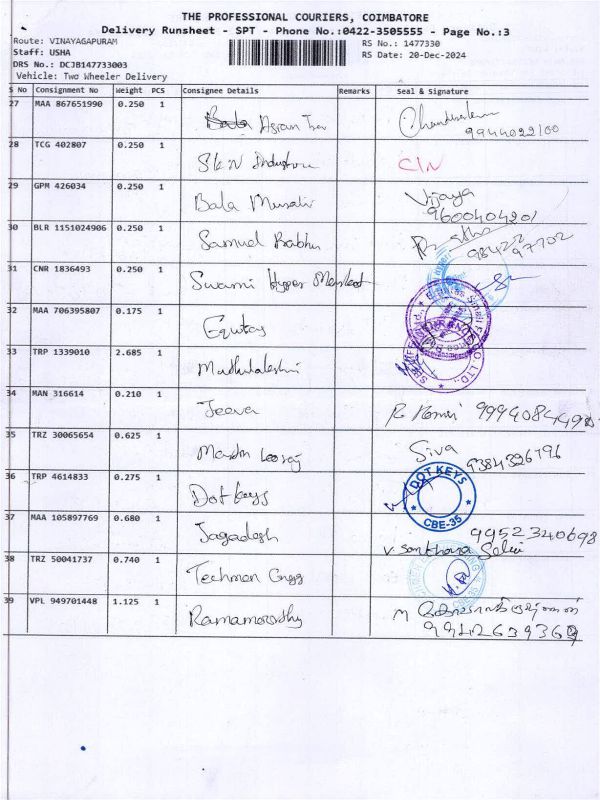 THE PROFESSIONAL COURIERS, COIMBATORE
Delivery Runsheet - SPT - Phone No.:0422-3505555 - Page No.:3
Route: VINAYAGAPURAM
RS No.: 1477330
Staff: USHA
RS Date: 20-Dec-2024
DRS No.: DCJB147733003
Vehicle: Two Wheeler Delivery
S No Consignment No Weight PCS Consignee Details Remarks Seal & Signature
27 MAA 867651990 0.250 1 Asian
9944022100
28 TCG 402807 0.250 1 SKN
29 GPM 426034 0.250 1 Bala Vijaya
9600404201
30 BLR 1151024906 0.250 1 Samuel Prabhu
98422 97702
31 CNR 1836493 0.250 1 Swami Hyper Market
32 MAA 706395807 0.175 1 Equitas
33 TRP 1339010 2.685 1 Muthulakshmi
34 MAN 316614 0.210 1 Jeeva
35 TRZ 30065654 0.625 1 Siva
9384326796
36 TRP 4614833 0.275 1 Dot keys DOT KEYS
CBE-35
37 MAA 105897769 0.680 1 Jagadesh 9952340698
V. Santhana Selvi
38 TRZ 50041737 0.740 1 Techmon Engg
39 VPL 949701448 1.125 1 Ramamoorthy M